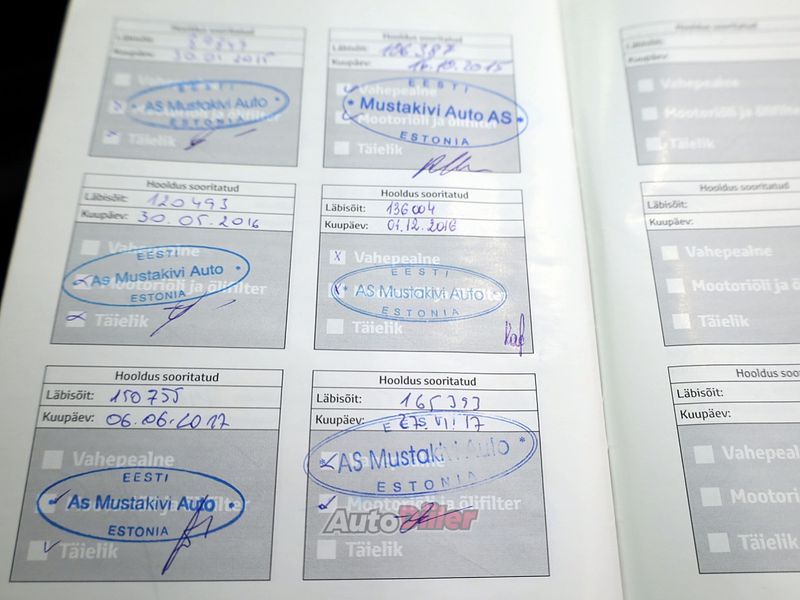 Läbisõit:
Kuupäev: 30.01.2015
EESTI
AS Mustakivi Auto
Mootoriõli ja õlifilter
ESTONIA
Täielik
Läbisõit: 106387
Kuupäev:
EESTI
Vahepealne
Mustakivi Auto AS
Mootoriõli ja õlifilter
ESTONIA
Täielik
Hooldus sooritatud
Läbisõit: 120493
Kuupäev: 30.05.2016
Vahepealne
EESTI
As Mustakivi Auto
Mootoriõli ja õlifilter
ESTONIA
Täielik
Hooldus sooritatud
Läbisõit: 136004
Kuupäev: 01.12.2016
Vahepealne
EESTI
AS Mustakivi Auto
ESTONIA
Täielik
Hooldus sooritatud
Läbisõit: 150755
Kuupäev: 06.06.2017
Vahepealne
EESTI
As Mustakivi Auto
ESTONIA
Täielik
Hooldus sooritatud
Läbisõit: 165393
Kuupäev:
EESTI
AS Mustakivi Auto
ESTONIA
Mootoriõli ja õlifilter
Täielik
AutoDiler
Vahepealne
Mootoriõli ja õlifilter
Täielik
Hooldus sooritatud
Läbisõit:
Kuupäev:
Vahepealne
Mootoriõli ja õ
Täielik
Hooldus soo
Läbisõit:
Kuupäev:
Vahepealne
Mootoriõli
Täielik